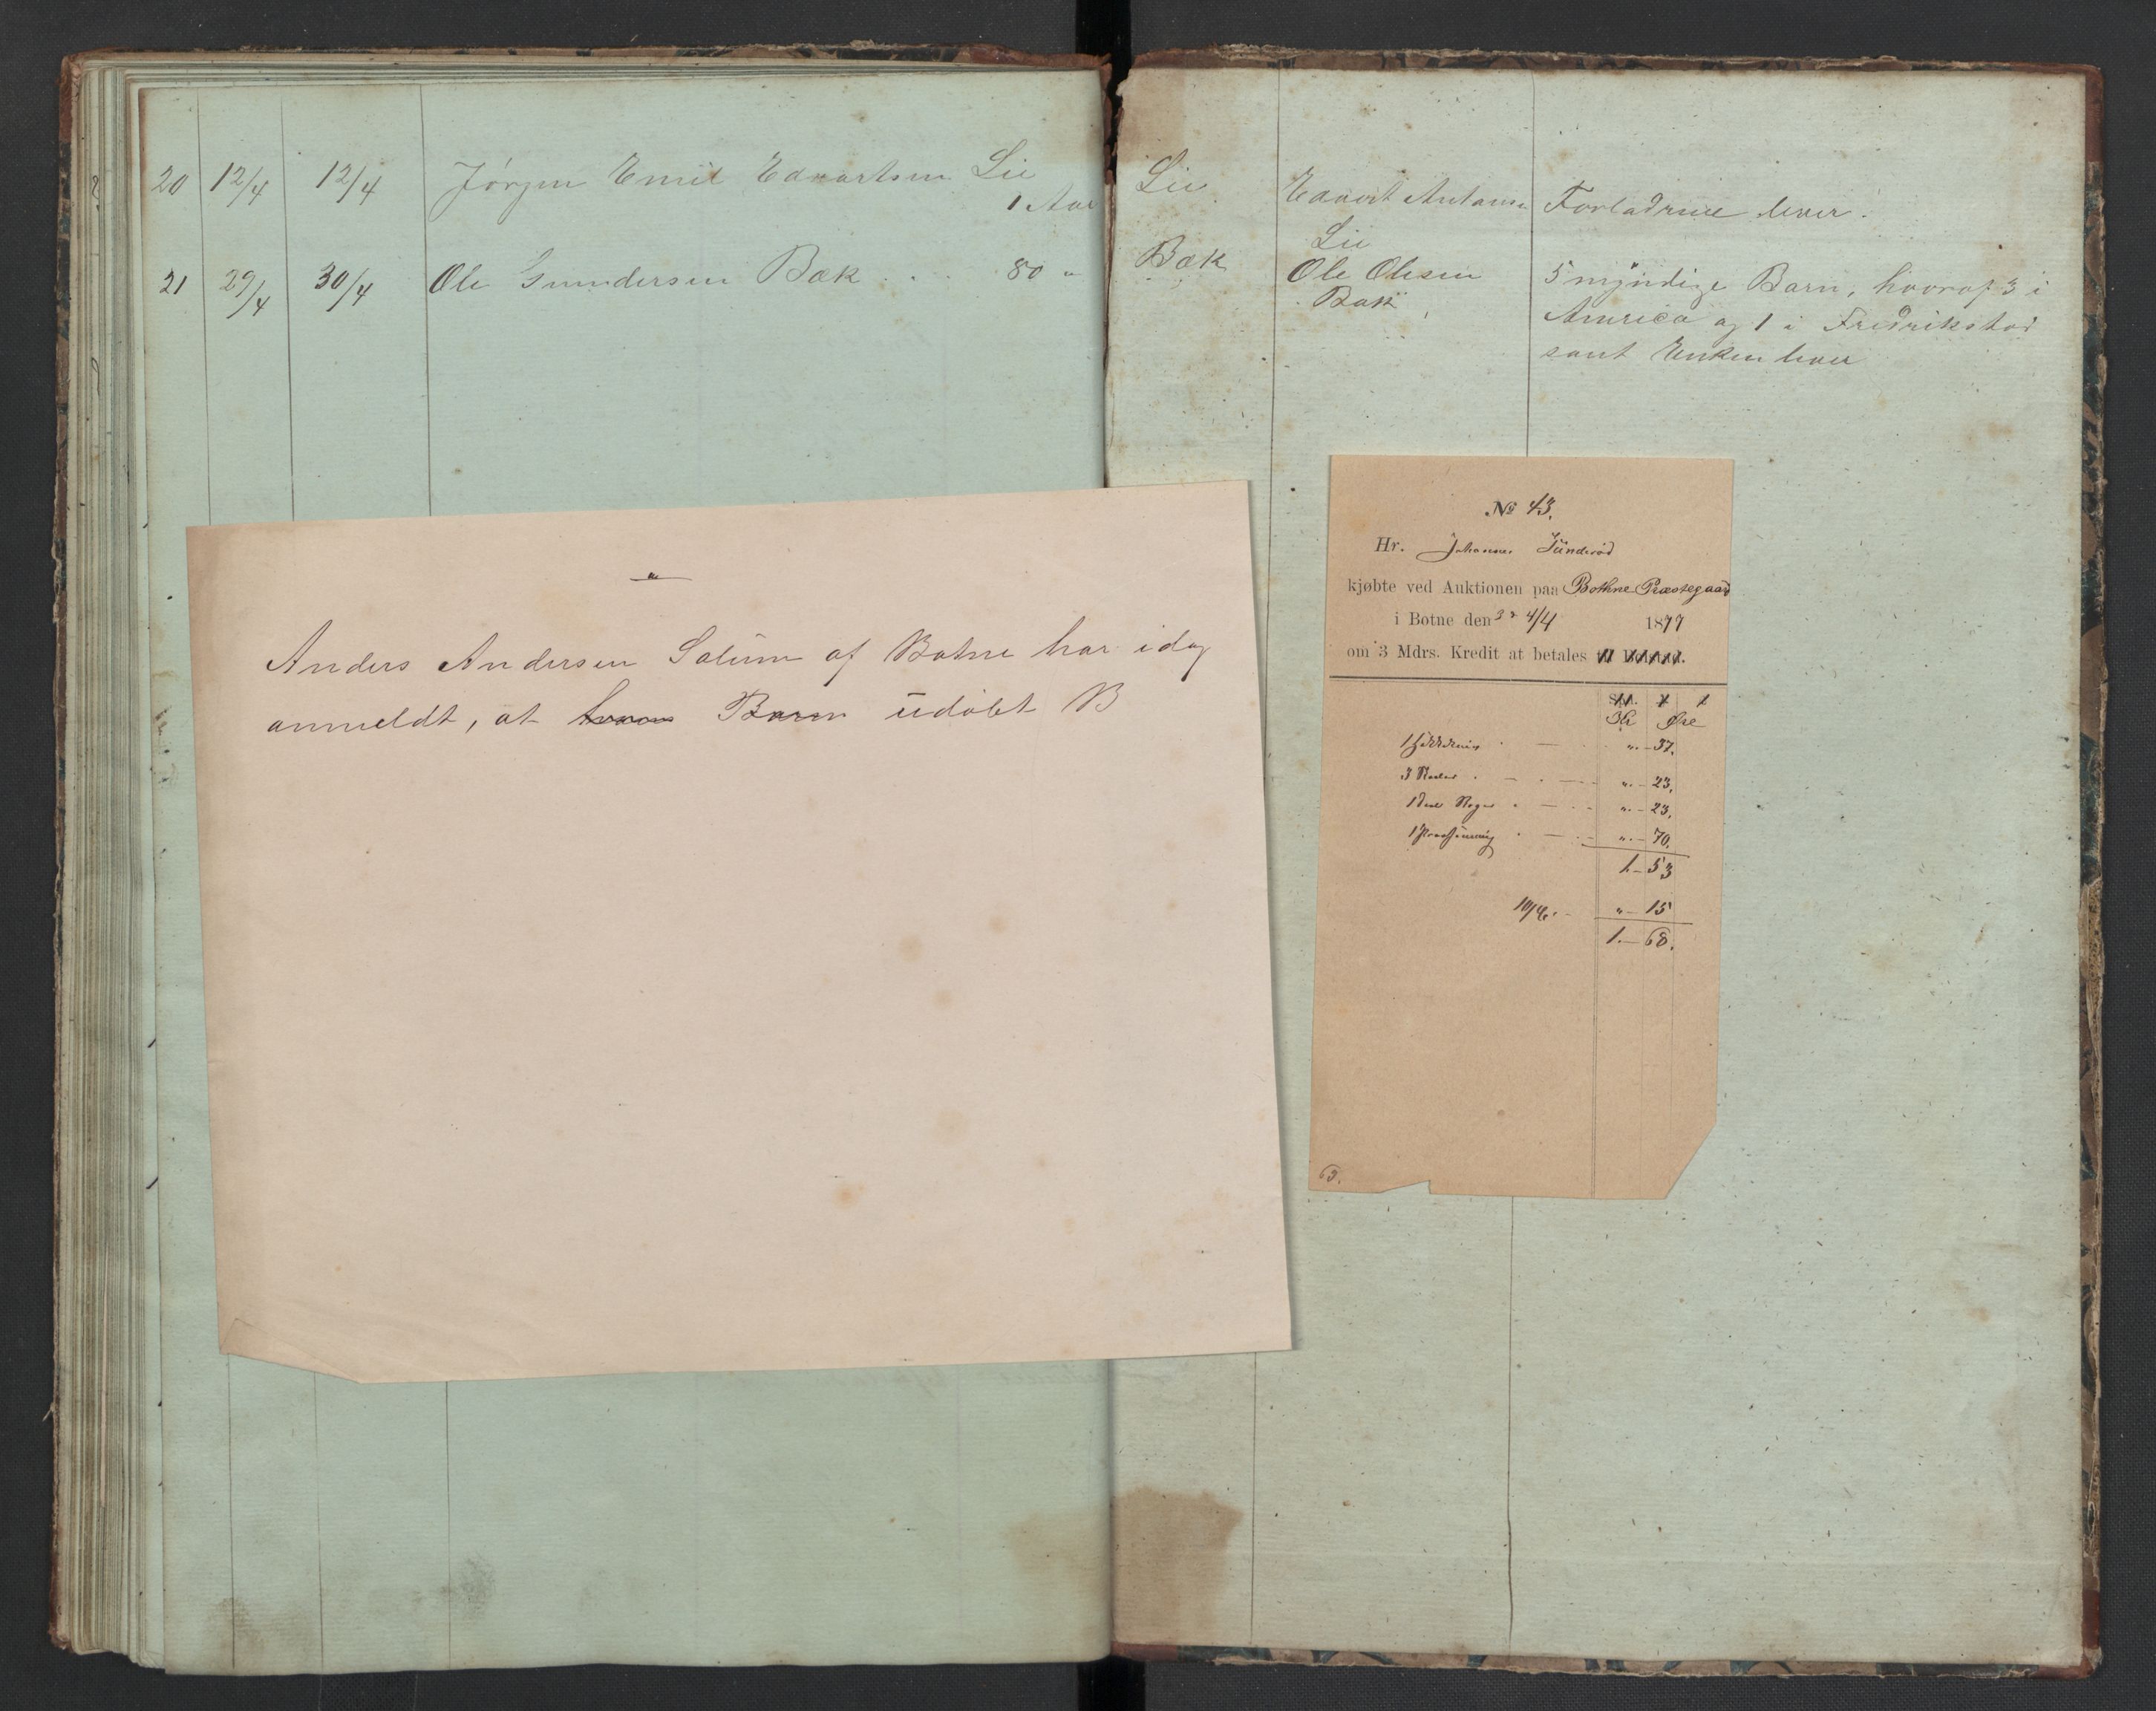 20 12/4 12/4 Jørgen Emil Edvartsen Lie
1 Aar
21 29/4 30/4 Ole Gundersen Bæk . . . 80 "
Lie Edvart Antonsen Forældrene lever.
Lie
Bæk Ole Olesen 5 myndige Børn, hvoraf 3 i
Bæk America og 1 i Fredrikstad
samt Enken lever
Anders Andersen Solum af Botne har idag
anmeldt, at hans Barn udøbt B
№ 43.
Hr. Johannes Sünderød
kjøbte ved Auktionen paa Bothne Præstegaard
i Botne den 3 & 4/4 1877
om 3 Mdrs. Kredit at betales
Kr Øre
1 " - 37.
3 " - 23.
1 " - 23.
1 " - 70.
1 - 53
" - 15
1. - 68.
63.